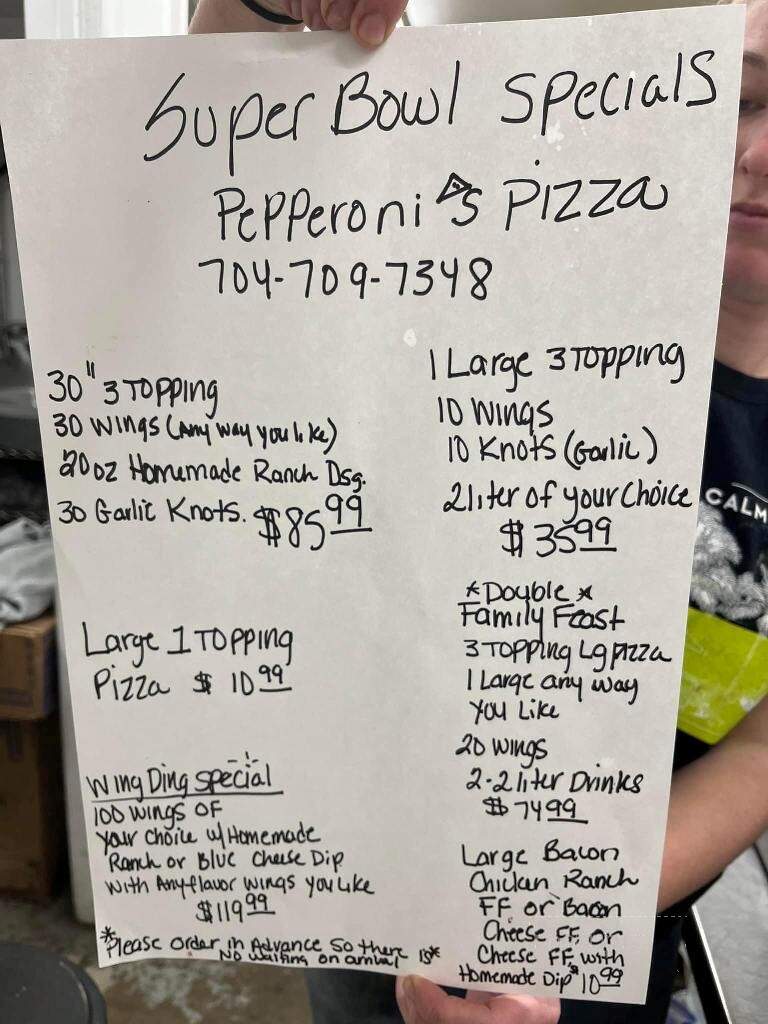 Super Bowl Specials
Pepperoni's Pizza
704-709-7348
30" 3 Topping
30 Wings (Any way you like)
20oz Homemade Ranch Dsg.
30 Garlic Knots. $85.99
Large 1 Topping
Pizza $10.99
Wing Ding Special
100 Wings of
your choice w/Homemade
Ranch or Blue Cheese Dip
with Any flavor wings you like
$119.99
*Please order in Advance so there is*
No waiting on arrival
1 Large 3 Topping
10 Wings
10 Knots (Garlic)
2 liter of your choice
$35.99
*Double*
Family Feast
3 Topping Lg pizza
1 Large any way
you like
20 wings
2-2 liter Drinks
$74.99
Large Bacon
Chicken Ranch
FF or Bacon
Cheese FF, or
Cheese FF, with
Homemade Dip $10.99
CALM